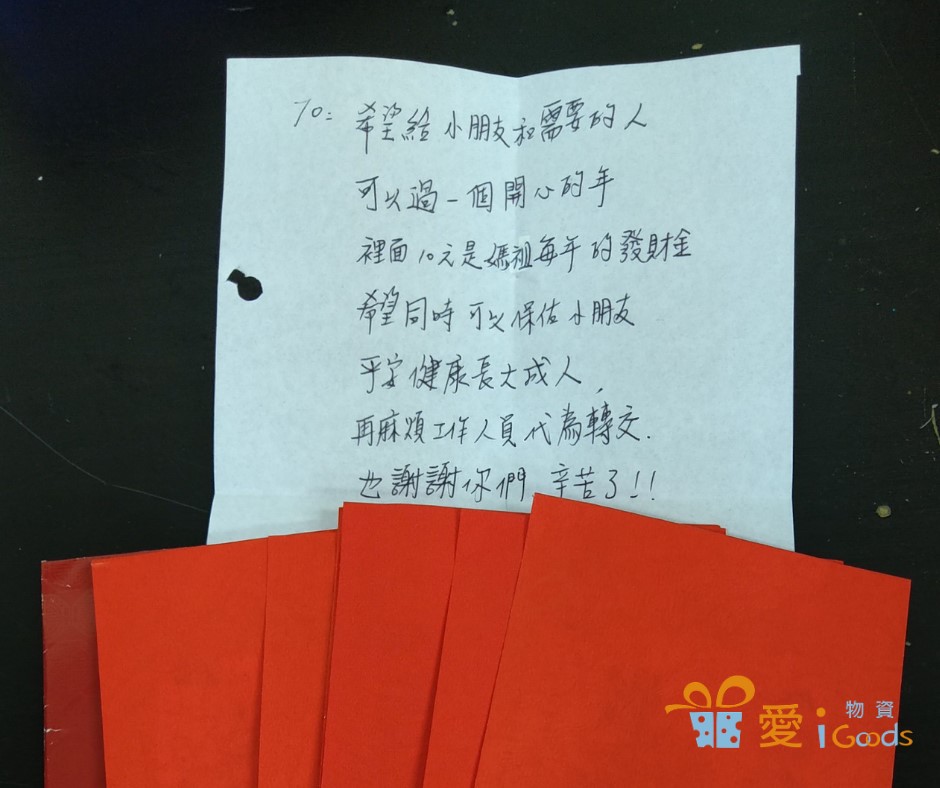 To: 希望給小朋友和需要的人
可以過一個開心的年
裡面10元是媽祖每年的發財金
希望同時可以保佑小朋友
平安健康長大成人,
再麻煩工作人員代為轉交.
也謝謝你們 辛苦了!!
愛物資 iGoods